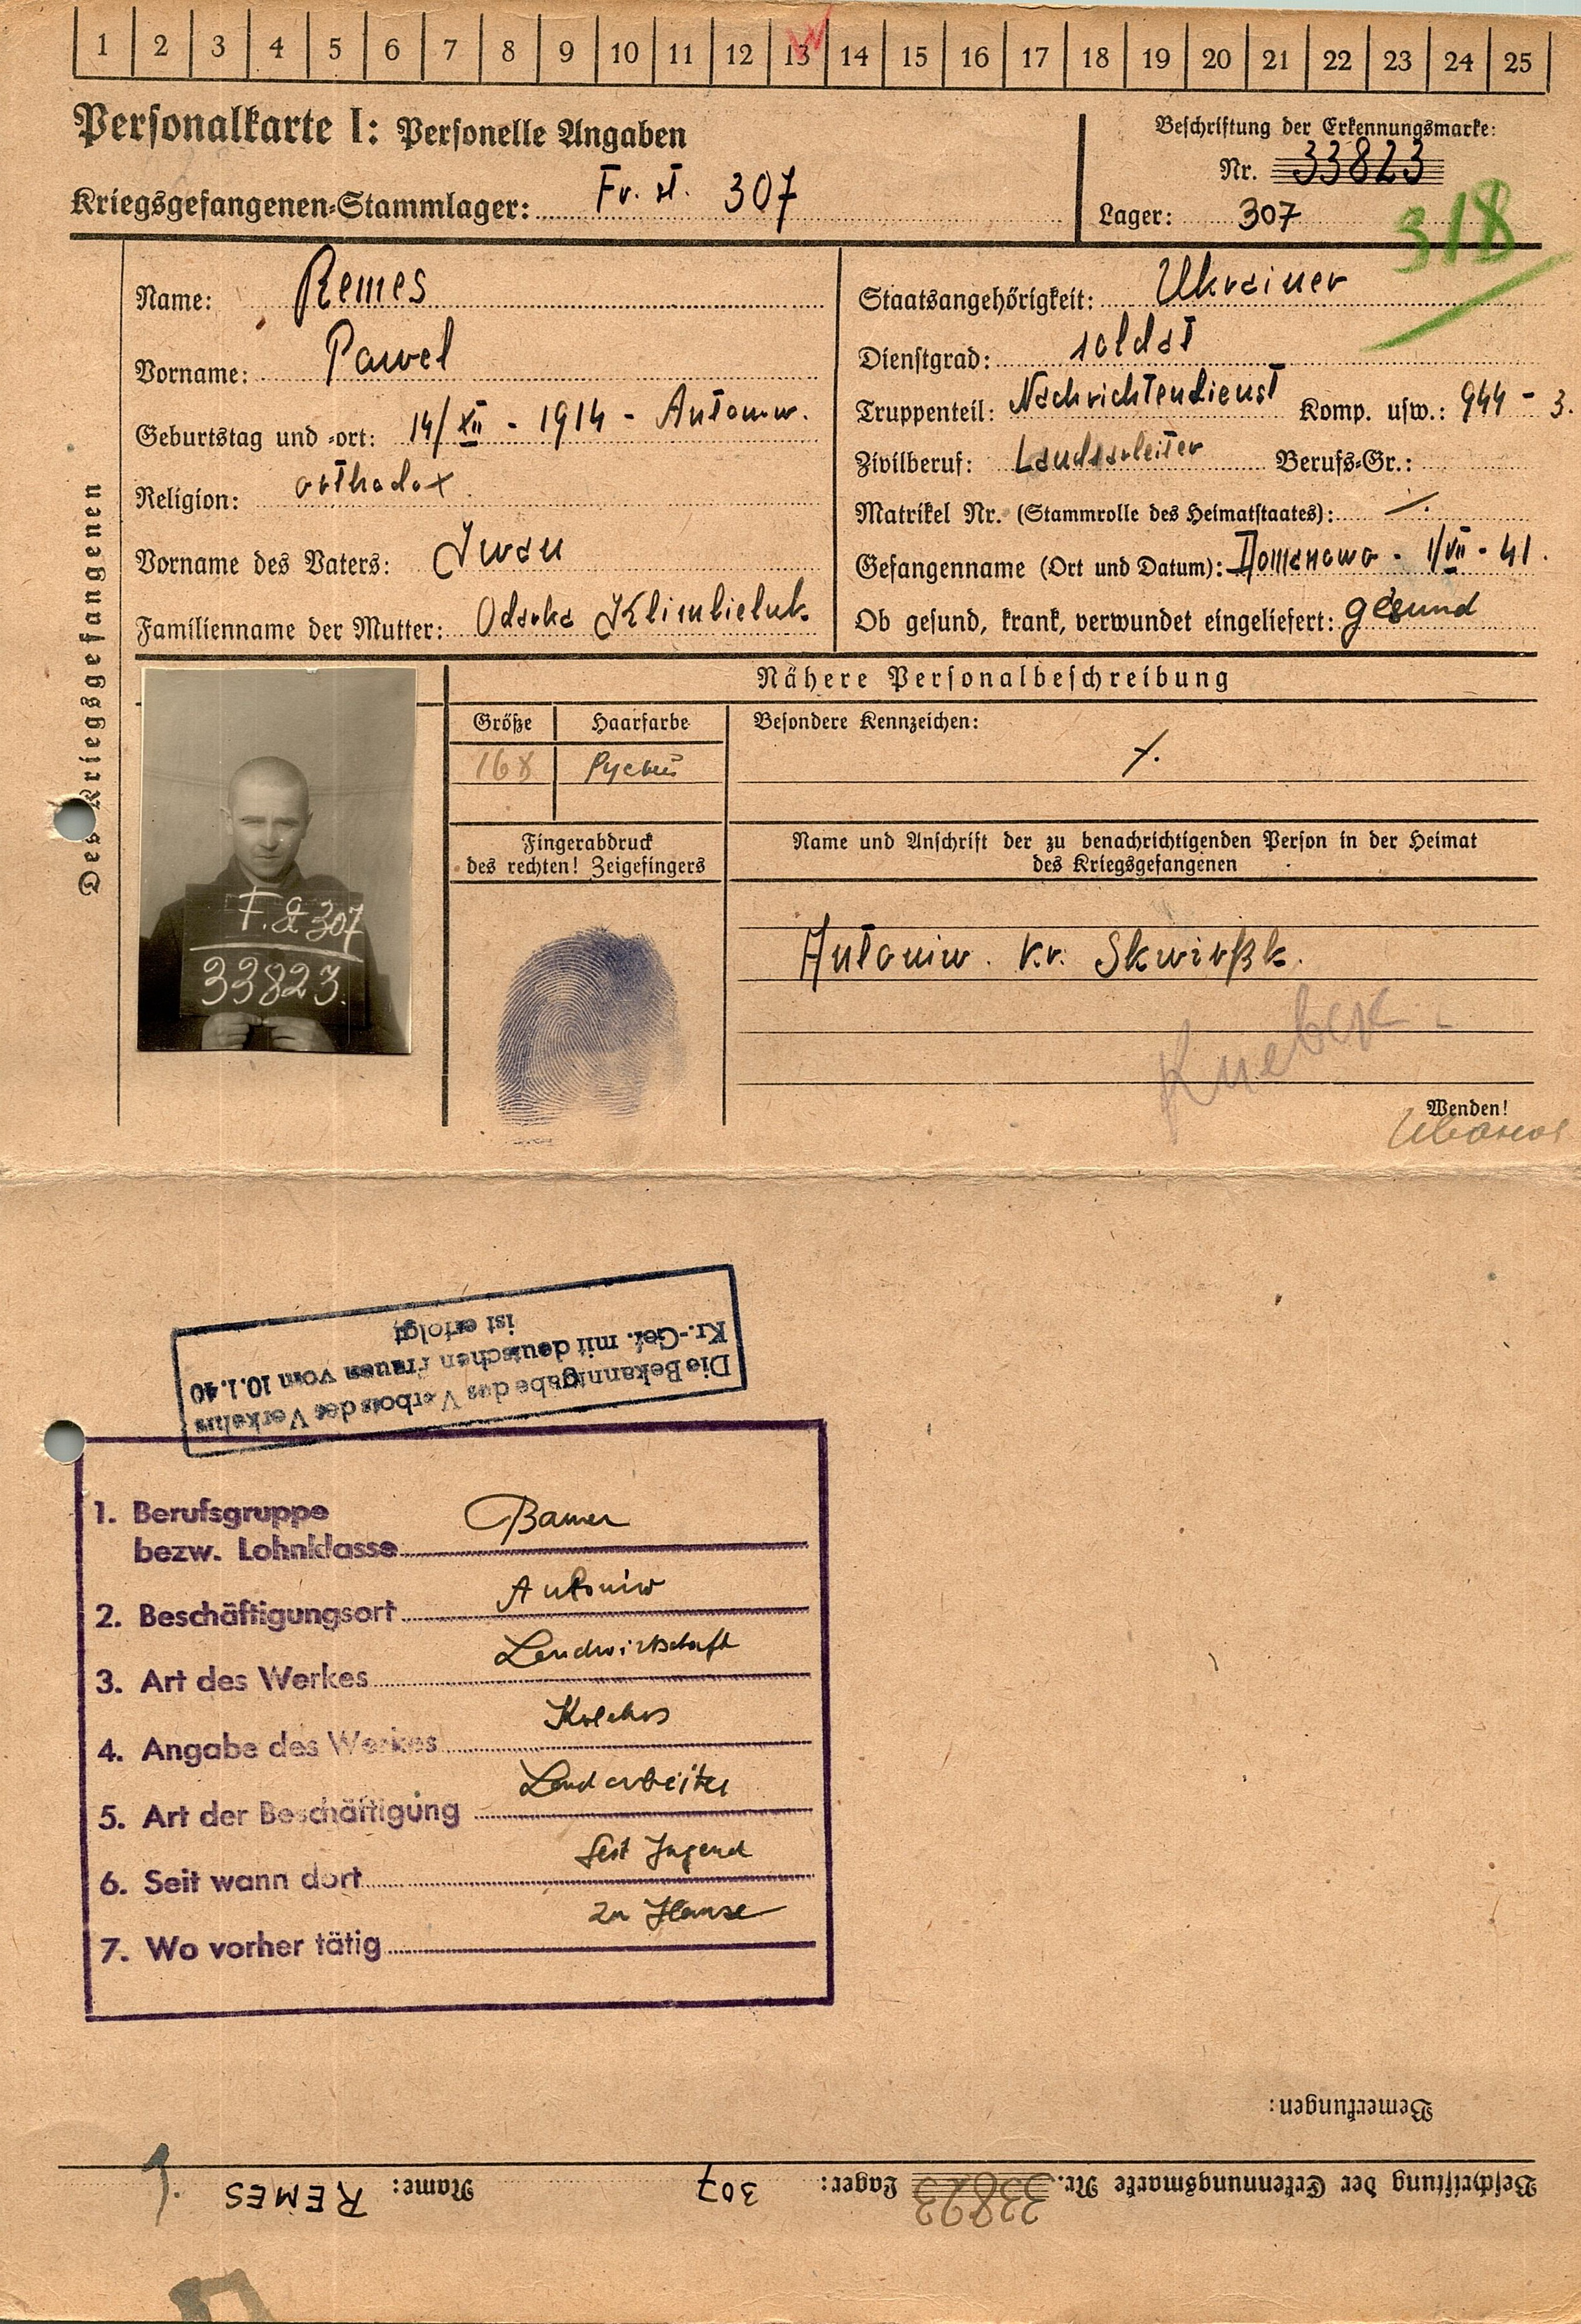 1 2 3 4 5 6 7 8 9 10 11 12 13 14 15 16 17 18 19 20 21 22 23 24 25
Personalkarte I: Personelle Angaben
Kriegsgefangenen-Stammlager: Fr. st. 307
Beschriftung der Erkennungsmarke:
Nr. 33823
Lager: 307
318
Des Kriegsgefangenen
Name: Remes
Vorname: Pawel
Geburtstag und -ort: 14/XII - 1914 - Antoniw.
Religion: orthodox
Vorname des Vaters: Iwan
Familienname der Mutter: Odarka
Staatsangehörigkeit: Ukrainer
Dienstgrad: soldat
Truppenteil: Nachrichtendienst Komp. usw.: 944 - 3.
Zivilberuf: Landarbeiter Berufs-Gr.:
Matrikel Nr. (Stammrolle des Heimatstaates): /.
Gefangenname (Ort und Datum): Домаnowo - 1/VII - 41.
Ob gesund, krank, verwundet eingeliefert: gesund
Nähere Personalbeschreibung
Größe Haarfarbe Besondere Kennzeichen:
168 Русый /.
Fingerabdruck
des rechten! Zeigefingers
Name und Anschrift der zu benachrichtigenden Person in der Heimat
des Kriegsgefangenen
F. St 307
33823.
Antoniw. Kr. Skwirßk.
Wenden!
Die Bekanntgabe des Verbots des Verkehrs
Kr.-Gef. mit deutschen Frauen vom 10.1.40
ist erfolgt
1. Berufsgruppe
bezw. Lohnklasse Bauer
2. Beschäftigungsort Antoniw
3. Art des Werkes Landwirtschaft
4. Angabe des Werkes Kolchos
5. Art der Beschäftigung Landarbeiter
6. Seit wann dort Seit Jugend
7. Wo vorher tätig zu Hause
Bemerkungen:
Beschriftung der Erkennungsmarke Nr. 33823 Lager: 307 Name: REMES